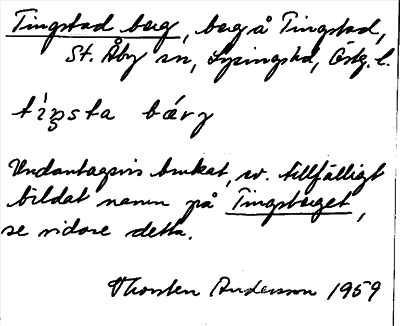 Tingstad berg, berg å Tingstad,
St. Åby sn, Lysings hd, Östg. l.
tiŋsta bærj
Undantagsvis brukat, ev. tillfälligt
bildat namn på Tingsberget,
se vidare detta.
Thorsten Andersson 1959